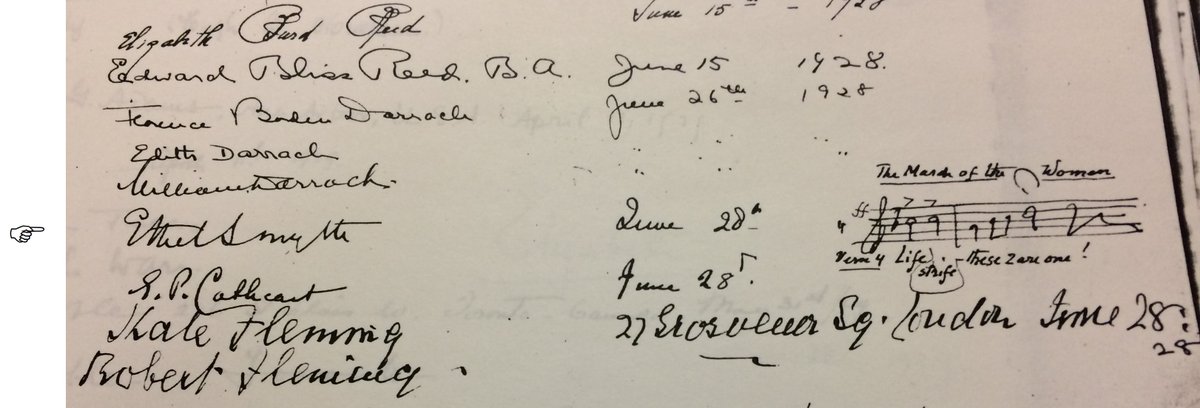 June 15th - 1928
Elizabeth Burd Reed
Edward Bliss Reed. B.A. June 15 1928.
Florence Borden Darrach June 26th 1928
Edith Darrach " " "
William Darrach. " " "
The March of the Women
Ethel Smyth June 28th
ff
Verse 4 Life, strife - these 2 are one!
E. P. Cathcart June 28.
Kate Fleming 27 Grosvenor Sq. London June 28. 28
Robert Fleming.